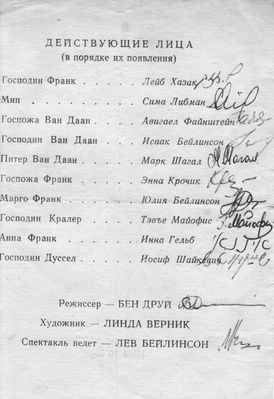 ДЕЙСТВУЮЩИЕ ЛИЦА
(в порядке их появления)
Господин Франк . . . . Лейб Хазак
Мип . . . . . . . Сима Либман
Госпожа Ван Даан . . . Авигаел Файнштейн
Господин Ван Даан . . . Исаак Бейлинсон
Питер Ван Даан . . . . Марк Шагал М Шагал
Госпожа Франк . . . . Энна Крочик
Марго Франк . . . . . Юлия Бейлинсон
Господин Кралер . . . . Тэвье Майофис Т. Майофис
Анна Франк . . . . . Инна Гельб
Господин Дуссел . . . . Иосиф Шайкевич
Режиссер — БЕН ДРУЙ
Художник — ЛИНДА ВЕРНИК
Спектакль ведет — ЛЕВ БЕЙЛИНСОН